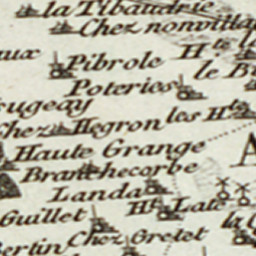 la Tibaudrie
Chez nonvilla
aux
Pibrole
Hte
Poteries
le B
ugeay
les Hte
Chez Hegron
Haute Grange
A
Branchecorbe
Landa
Guillet
Hte Late
la C
Bertin
Chez Gretet